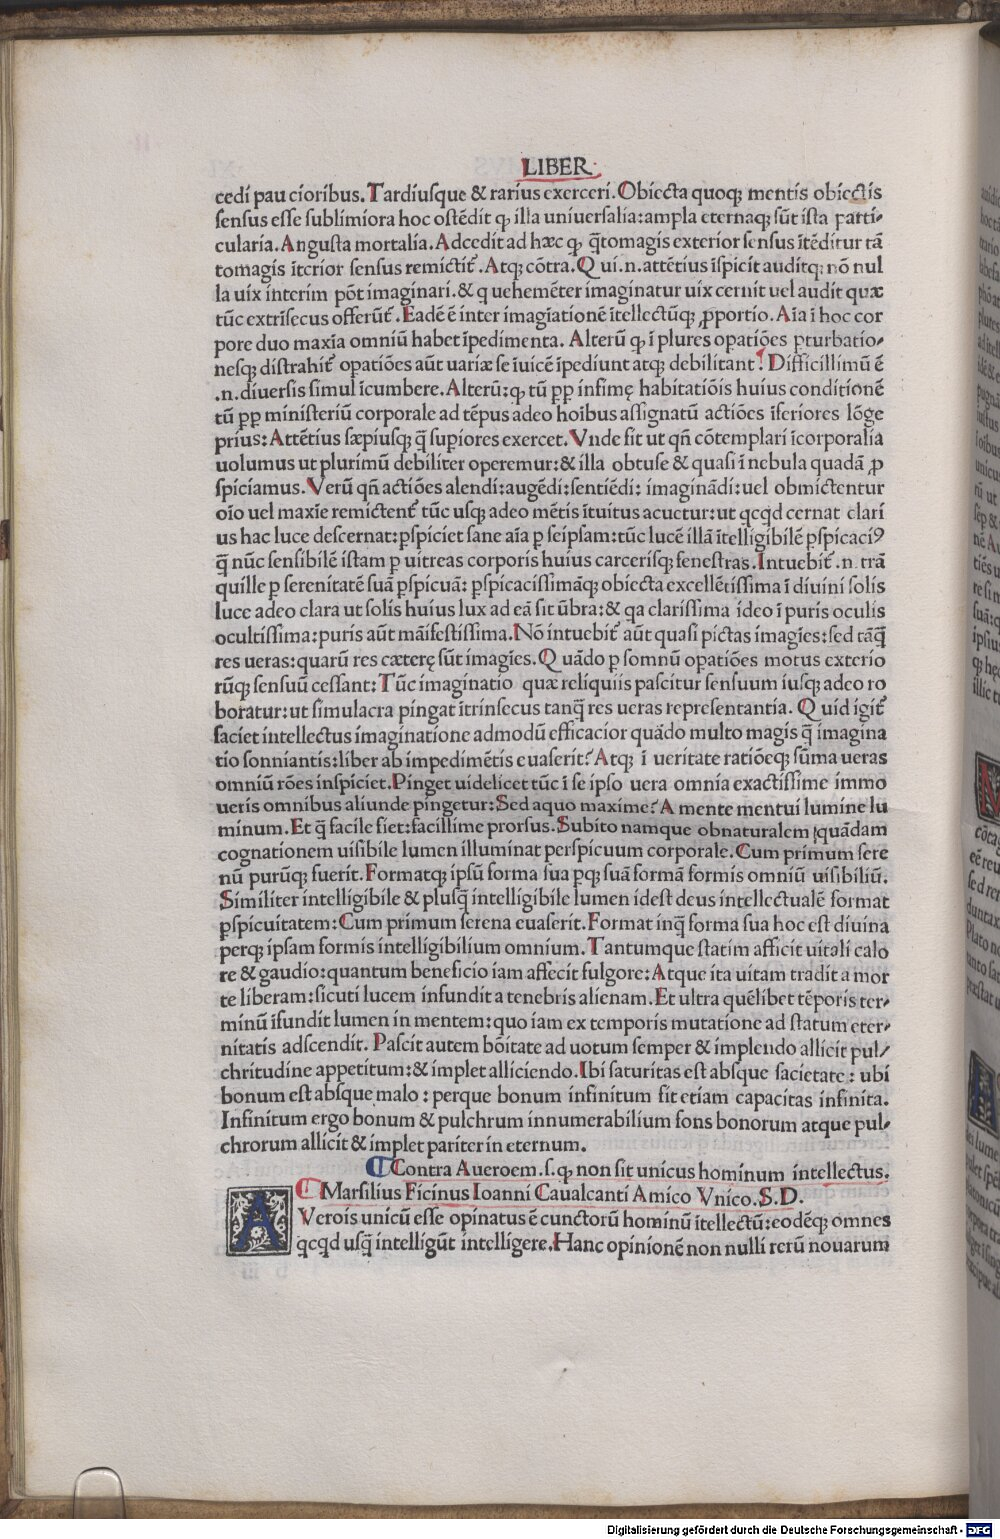 LIBER
cedi pau cioribus. Tardiusque & rarius exerceri. Obiecta quoqꝫ mentis obiectis
sensus esse sublimiora hoc ostēdit qꝫ illa uniuersalia: ampla eternaqꝫ sūt ista parti⸗
cularia. Angusta mortalia. Adcedit ad hæc ꝙ q̄tomagis exterior sensus ītēditur tā
tomagis īterior sensus remictit᷑. Atqꝫ cōtra. Qui .n. attētius īspicit auditqꝫ nō nul
la uix interim pōt imaginari. & q uehemēter imaginatur uix cernit uel audit quæ
tūc extrīsecus offerūt᷑. Eadē ē inter imagīationē ītellectūqꝫ ꝓportio. Aīa ī hoc cor
pore duo maxīa omniū habet īpedimenta. Alterū ꝙ ī plures oꝑatiōes ꝑturbatio⸗
nesqꝫ distrahit᷑ oꝑatiōes aūt uariæ se īuicē īpediunt atqꝫ debilitant. Difficillimū ē
.n. diuersis simul īcumbere. Alterū: ꝙ tū ꝓꝑ infimę habitatiōis huius conditionē
tū ꝓꝑ ministeriū corporale ad tēpus adeo hoībus assignatū actiōes īferiores lōge
prius: Attētius sæpiusqꝫ q̄ suꝑiores exercet. Vnde fit ut qn̄ cōtemplari īcorporalia
uolumus ut plurimū debiliter operemur: & illa obtuse & quasi ī nebula quadā ꝑ
spiciamus. Verū qn̄ actiōes alendi: augēdi: sentiēdi: imaginādi: uel obmictentur
oīo uel maxīe remictent᷑ tūc usqꝫ adeo mētis ītuitus acuetur: ut qcqd cernat clari
us hac luce descernat: ꝑspiciet sane aīa ꝑ seipsam: tūc lucē illā ītelligibilē ꝑspicaciꝰ
q̄ nūc sensibilē istam ꝑ uitreas corporis huius carcerisqꝫ fenestras. Intuebit᷑ .n. trā
quille ꝑ serenitatē suā ꝑspicuā: ꝑspicacissimāqꝫ obiecta excellētissima ī diuini solis
luce adeo clara ut solis huius lux ad eā sit ūbra: & qa clarissima ideo ī puris oculis
ocultissima: puris aūt māifestissima. Nō intuebit᷑ aūt quasi pictas imagīes: sed tāq̄
res ueras: quarū res cæterę sūt imagīes. Quādo ꝑ somnū oꝑatiōes motus exterio
rūqꝫ sensuū cessant: Tūc imaginatio quæ reliquiis pascitur sensuum iusqꝫ adeo ro
boratur: ut simulacra pingat ītrinsecus tanq̄ res ueras representantia. Quid igit᷑
faciet intellectus imaginatione admodū efficacior quādo multo magis q̄ imagina
tio sonniantis: liber ab impedimētis euaserit? Atqꝫ ī ueritate ratiōeqꝫ sūma ueras
omniū rōes inspiciet. Pinget uidelicet tūc ī se ipso uera omnia exactissime immo
ueris omnibus aliunde pingetur: Sed aquo maxime? A mente mentui lumine lu
minum. Et q̄ facile fiet: facillime prorsus. Subito namque obnaturalem quādam
cognationem uisibile lumen illuminat perspicuum corporale. Cum primum sere
nū purūqꝫ fuerit. Formatqꝫ ipsū forma sua ꝑqꝫ suā formā formis omniū uisibiliū.
Similiter intelligibile & plusq̄ intelligibile lumen idest deus intellectualē format
ꝑspicuitatem: Cum primum serena euaserit. Format inq̄ forma sua hoc est diuina
perqꝫ ipsam formis intelligibilium omnium. Tantumque statim afficit uitali calo
re & gaudio: quantum beneficio iam affecit fulgore: Atque ita uitam tradit a mor
te liberam: sicuti lucem infundit a tenebris alienam. Et ultra quēlibet tēporis ter⸗
minū īfundit lumen in mentem: quo iam ex temporis mutatione ad statum eter⸗
nitatis adscendit. Pascit autem bōitate ad uotum semper & implendo allicit pul⸗
chritudine appetitum: & implet alliciendo. Ibi saturitas est absque sacietate: ubi
bonum est absque malo: perque bonum infinitum sit etiam capacitas infinita.
Infinitum ergo bonum & pulchrum innumerabilium fons bonorum atque pul⸗
chrorum allicit & implet pariter in eternum.
Contra Aueroem .s. qꝫ non sit unicus hominum intellectus.
Marsilius Ficinus Ioanni Caualcanti Amico Vnico. S. D.
AVerois unicū esse opinatus ē cunctorū hominū ītellectū: eodēqꝫ omnes
qcqd usq̄ intelligūt intelligere. Hanc opinionē non nulli rerū nouarum
Digitalisierung gefördert durch die Deutsche Forschungsgemeinschaft - DFG